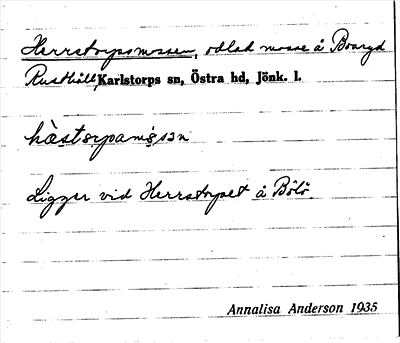 Herrstorpsmossen, odlad mosse å Boaryd
Rusthåll, Karlstorps sn, Östra hd, Jönk. l.
hæstorpamåsən
Ligger vid Herrstorpet å Bölö.
Annalisa Anderson 1935